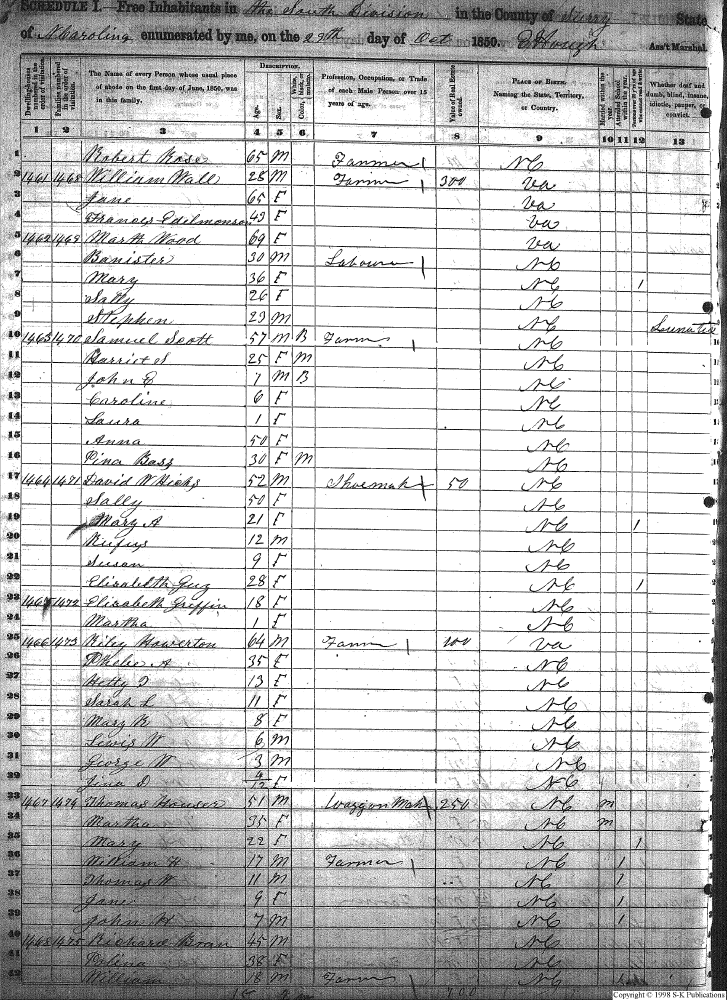 SCHEDULE I.—Free Inhabitants in the South Division in the County of Surry State
of N Carolina enumerated by me, on the 29th day of Oct 1850. Ass't Marshal.
DESCRIPTION.
Dwelling-houses numbered in the order of visitation.
Families numbered in the order of visitation.
The Name of every Person whose usual place of abode on the first day of June, 1850, was in this family.
Age. Sex. Color, White, black, or mulatto.
Profession, Occupation, or Trade of each Male Person over 15 years of age.
Value of Real Estate owned.
PLACE OF BIRTH. Naming the State, Territory, or Country.
Married within the year.
Whether deaf and dumb, blind, insane, idiotic, pauper, or convict.
1 2 3 4 5 6 7 8 9 10 11 12 13
1 Robert Rose 65 M Farmer NC
2 1461 1468 William Wall 28 M Farmer 300 Va
3 Jane 65 F Va
4 Frances 43 F Va
5 1462 1469 Marth Wood 69 F Va
6 Banister 30 M Labourer NC
7 Mary 36 F NC 1
8 Sally 26 F NC
9 Stephen 23 M NC Lunatic
10 1463 1470 Samuel Scott 57 M B Farmer NC
11 Harriet S 25 F M NC
12 John E 7 M B NC
13 Caroline 6 F NC
14 Laura 1 F NC
15 Anna 50 F NC
16 Pina Bass 30 F M NC
17 1464 1471 David W Hicks 52 M Shoemak 50 NC
18 Sally 50 F NC
19 Mary A 21 F NC 1
20 Rufus 12 M NC
21 Susan 9 F NC
22 Elizabeth Guy 28 F NC 1
23 1465 1472 Elizabeth Griffin 18 F NC
24 Martha 1 F NC
25 1466 1473 Riley Howerton 64 M Farmer 100 Va
26 Phebe A 35 F NC
27 Hetty J 13 F NC
28 Sarah L 11 F NC
29 Mary R 8 F NC
30 Lewis W 6 M NC
31 George W 3 M NC
32 D 4/12 F NC
33 1467 1474 Thomas Houser 51 M Waggon Mak 250 NC m
34 Martha 35 F NC m
35 Mary 22 F NC 1
36 William H 17 M Farmer NC 1
37 Thomas W 11 M NC 1
38 Jane 9 F NC 1
39 John H 7 M NC 1
40 1468 1475 Richard 45 M NC
41 38 F NC
42 William 18 M Farmer NC
Copyright © 1998 S-K Publications